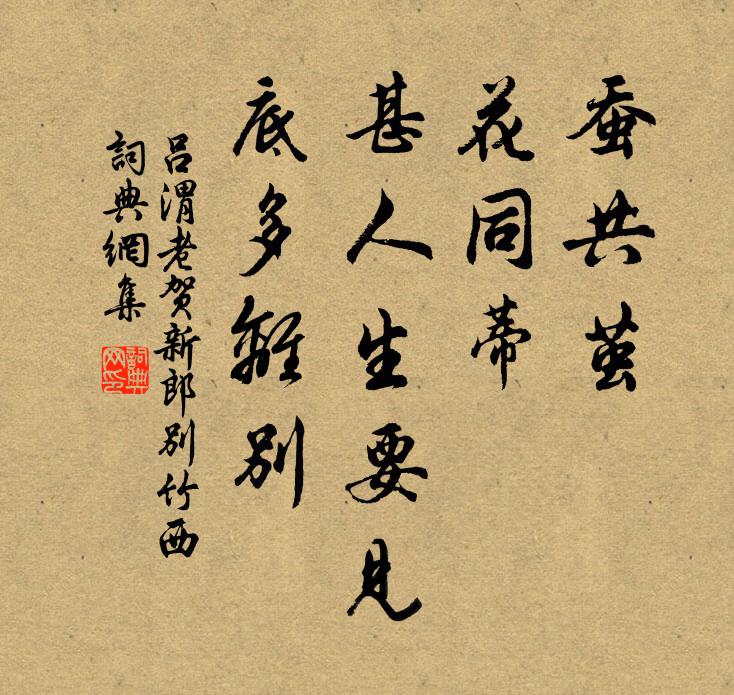 蚕共茧
花同蒂
甚人生要见
底多離别
吕渭老贺新郎别竹西
詞典網集
詞典网印